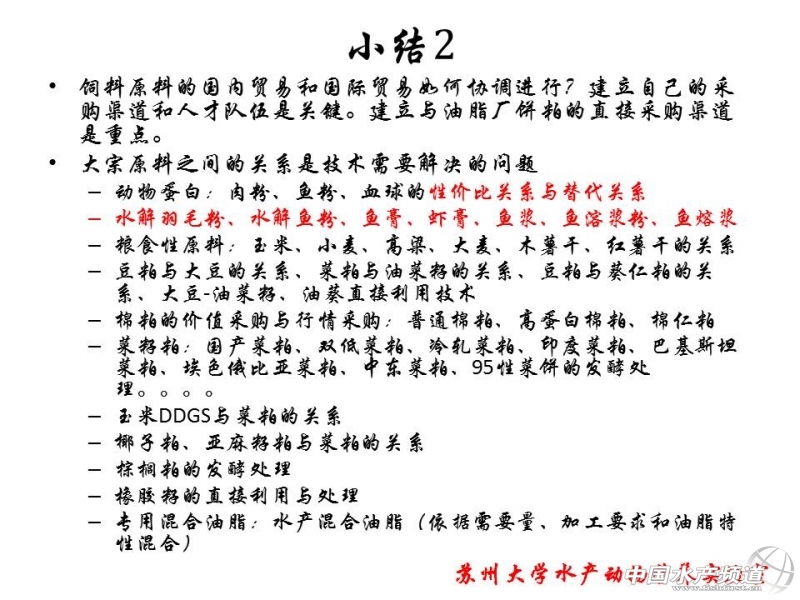 小结2
• 饲料原料的国内贸易和国际贸易如何协调进行？建立自己的采
购渠道和人才队伍是关键。建立与油脂厂饼粕的直接采购渠道
是重点。
• 大宗原料之间的关系是技术需要解决的问题
– 动物蛋白：肉粉、鱼粉、血球的性价比关系与替代关系
– 水解羽毛粉、水解鱼粉、鱼膏、虾膏、鱼浆、鱼溶浆粉、鱼熔浆
– 粮食性原料：玉米、小麦、高粱、大麦、木薯干、红薯干的关系
– 豆粕与大豆的关系、菜粕与油菜籽的关系、豆粕与葵仁粕的关
系、大豆-油菜籽、油葵直接利用技术
– 棉粕的价值采购与行情采购：普通棉粕、高蛋白棉粕、棉仁粕
– 菜籽粕：国产菜粕、双低菜粕、冷轧菜粕、印度菜粕、巴基斯坦
菜粕、埃色俄比亚菜粕、中东菜粕、95性菜饼的发酵处
理。。。。
– 玉米DDGS与菜粕的关系
– 椰子粕、亚麻籽粕与菜粕的关系
– 棕榈粕的发酵处理
– 橡胶籽的直接利用与处理
– 专用混合油脂：水产混合油脂（依据需要量、加工要求和油脂特
性混合）
苏州大学水产动物
中国水产频道
www.fishfirst.cn